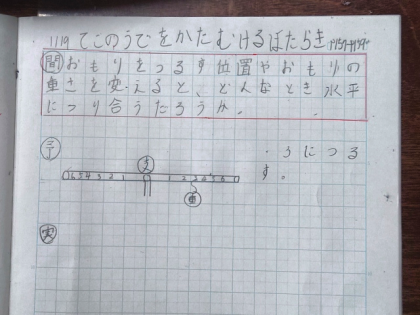 11/19 てこのうでをかたむけるはたらき
問 おもりをつるす位置やおもりの
重さを変えると、どんなとき水平
につり合うだろうか。
予
うにつる
す。
支
6 5 4 3 2 1 1 2 3 4 5 6
実